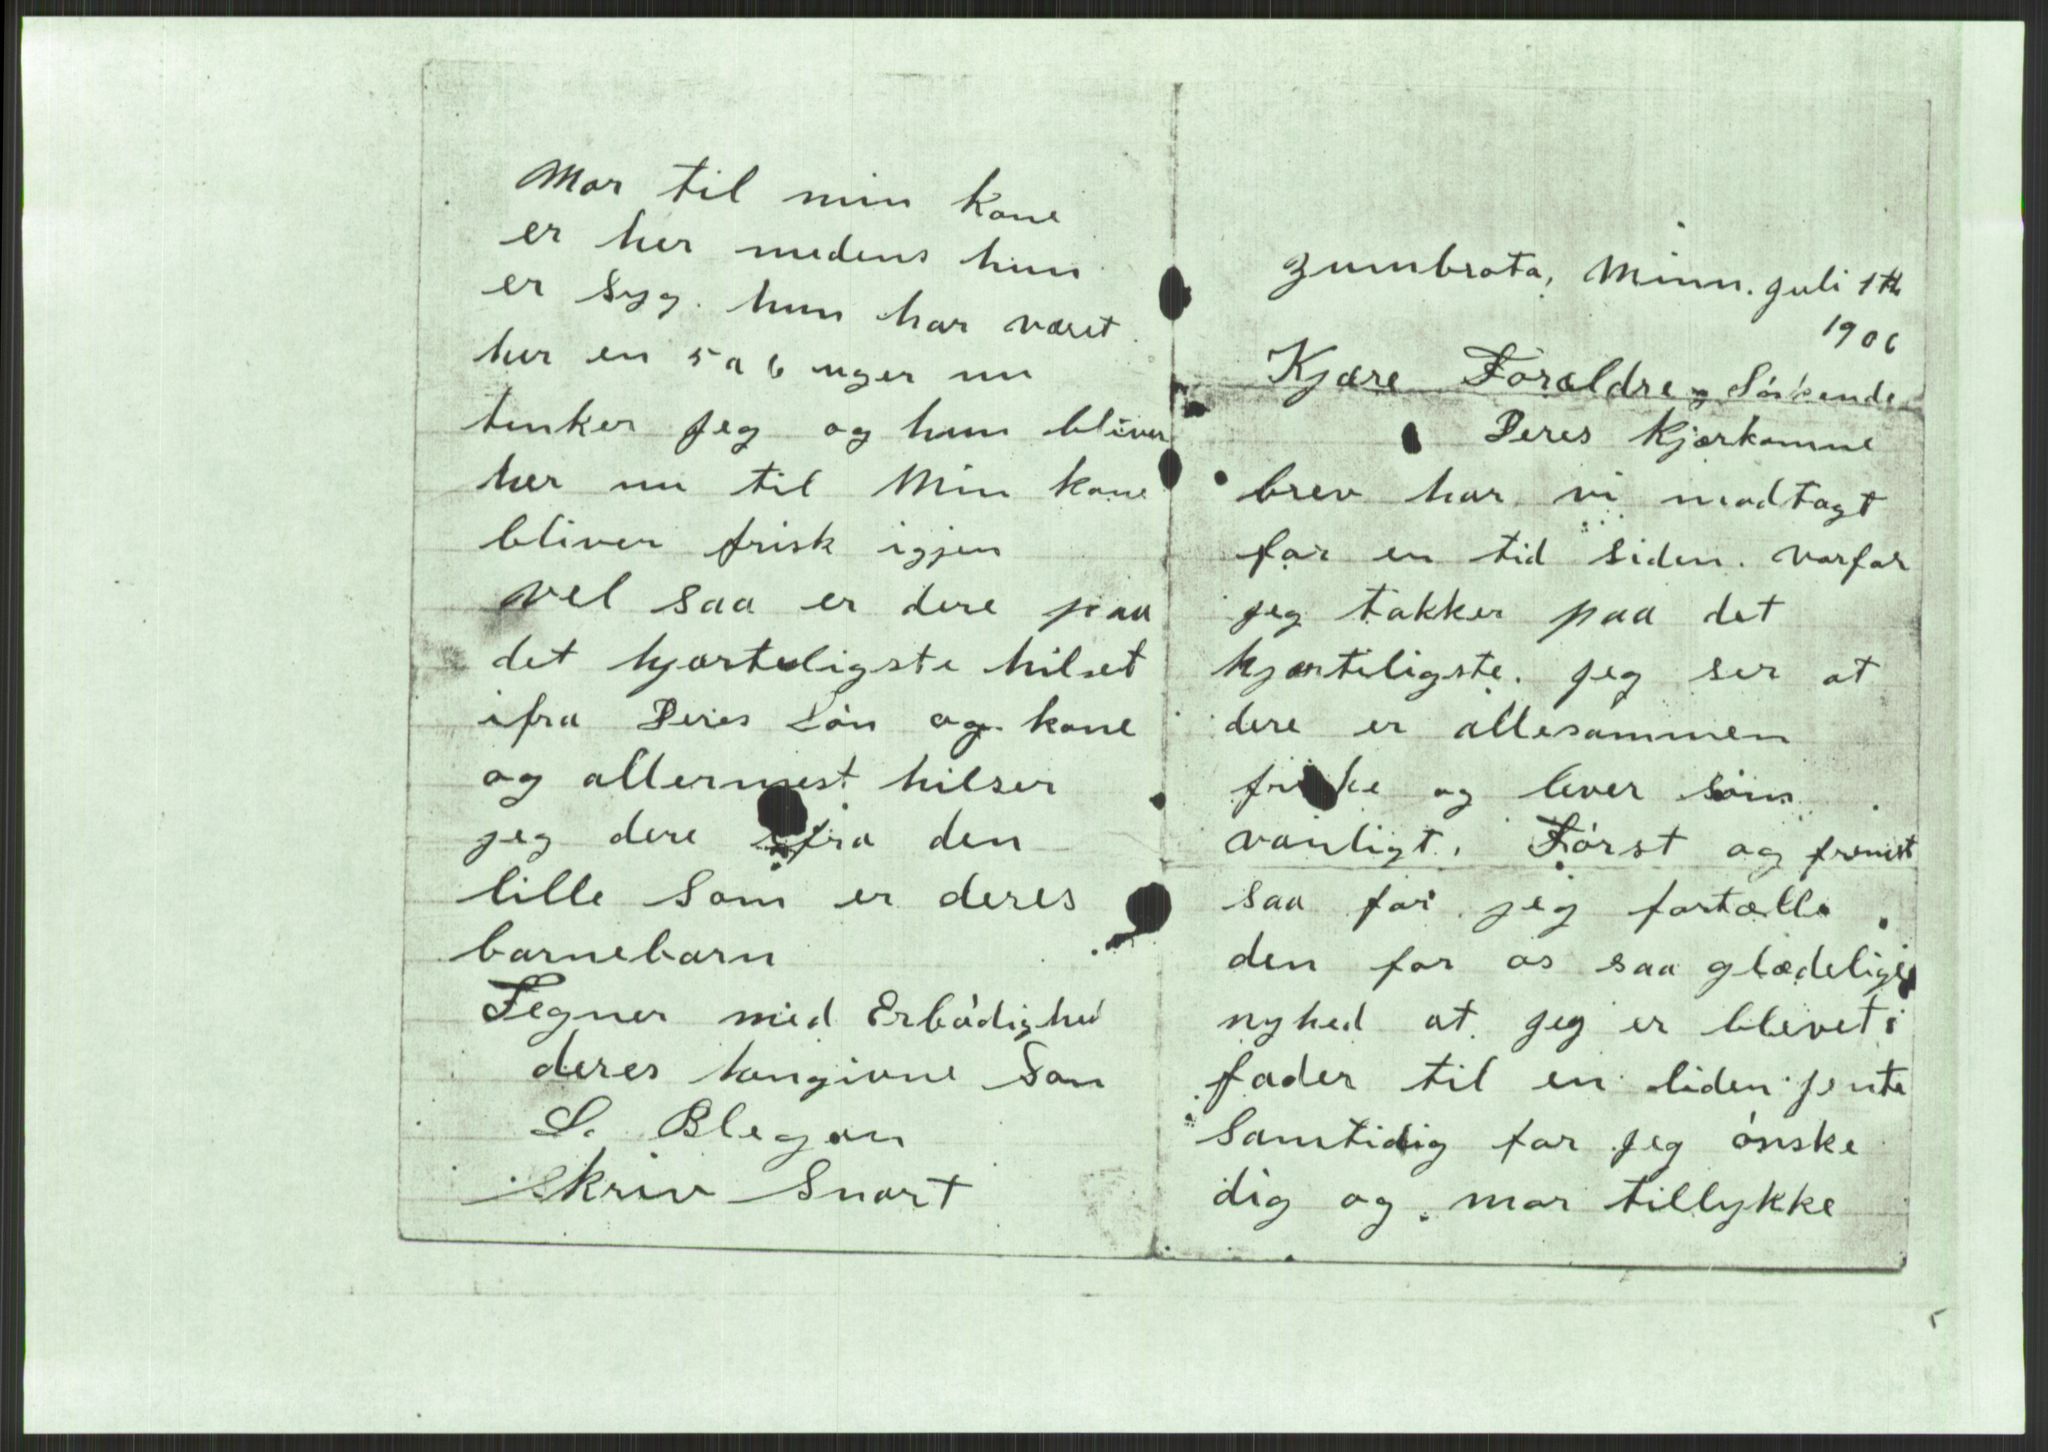 Mor til min kone
er her medens hun
er syg. hun har været
her en 5 a 6 uger nu
tenker jeg og hun bliver
her nu til Min kone
bliver frisk igjen
vel saa er dere paa
det hjerteligste hilset
ifra Deres Sön og kone
og allermest hilser
jeg dere ifra den
lille Som er deres
barnebarn
Tegner med Erbödighed
deres hengivne Son
S. Blegen
Skriv Snart
Zumbrota, Minn. Juli 1th
1906
Kjære Forældre og Söskende
Deres Kjærkomne
brev har vi modtagt
for en tid siden. varfor
jeg takker paa det
hjerteligste. jeg ser at
dere er allesammen
friske og lever som
vanligt. Först og fremst
saa for jeg fortælle
den for os saa glædelige
nyhed at jeg er blevet
fader til en liden jente
Samtidig for jeg önske
dig og mor tillykke